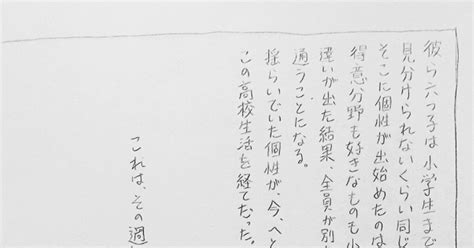 彼ら六つ子は小学生まで
見分けられないくらい同じ
そこに個性が出始めたのは
得意分野も好きなものも小
違いが出た結果、全員が別
通うことになる。
揺らいでいた個性が、今、へと
この高校生活を経てだった。
これは、その過